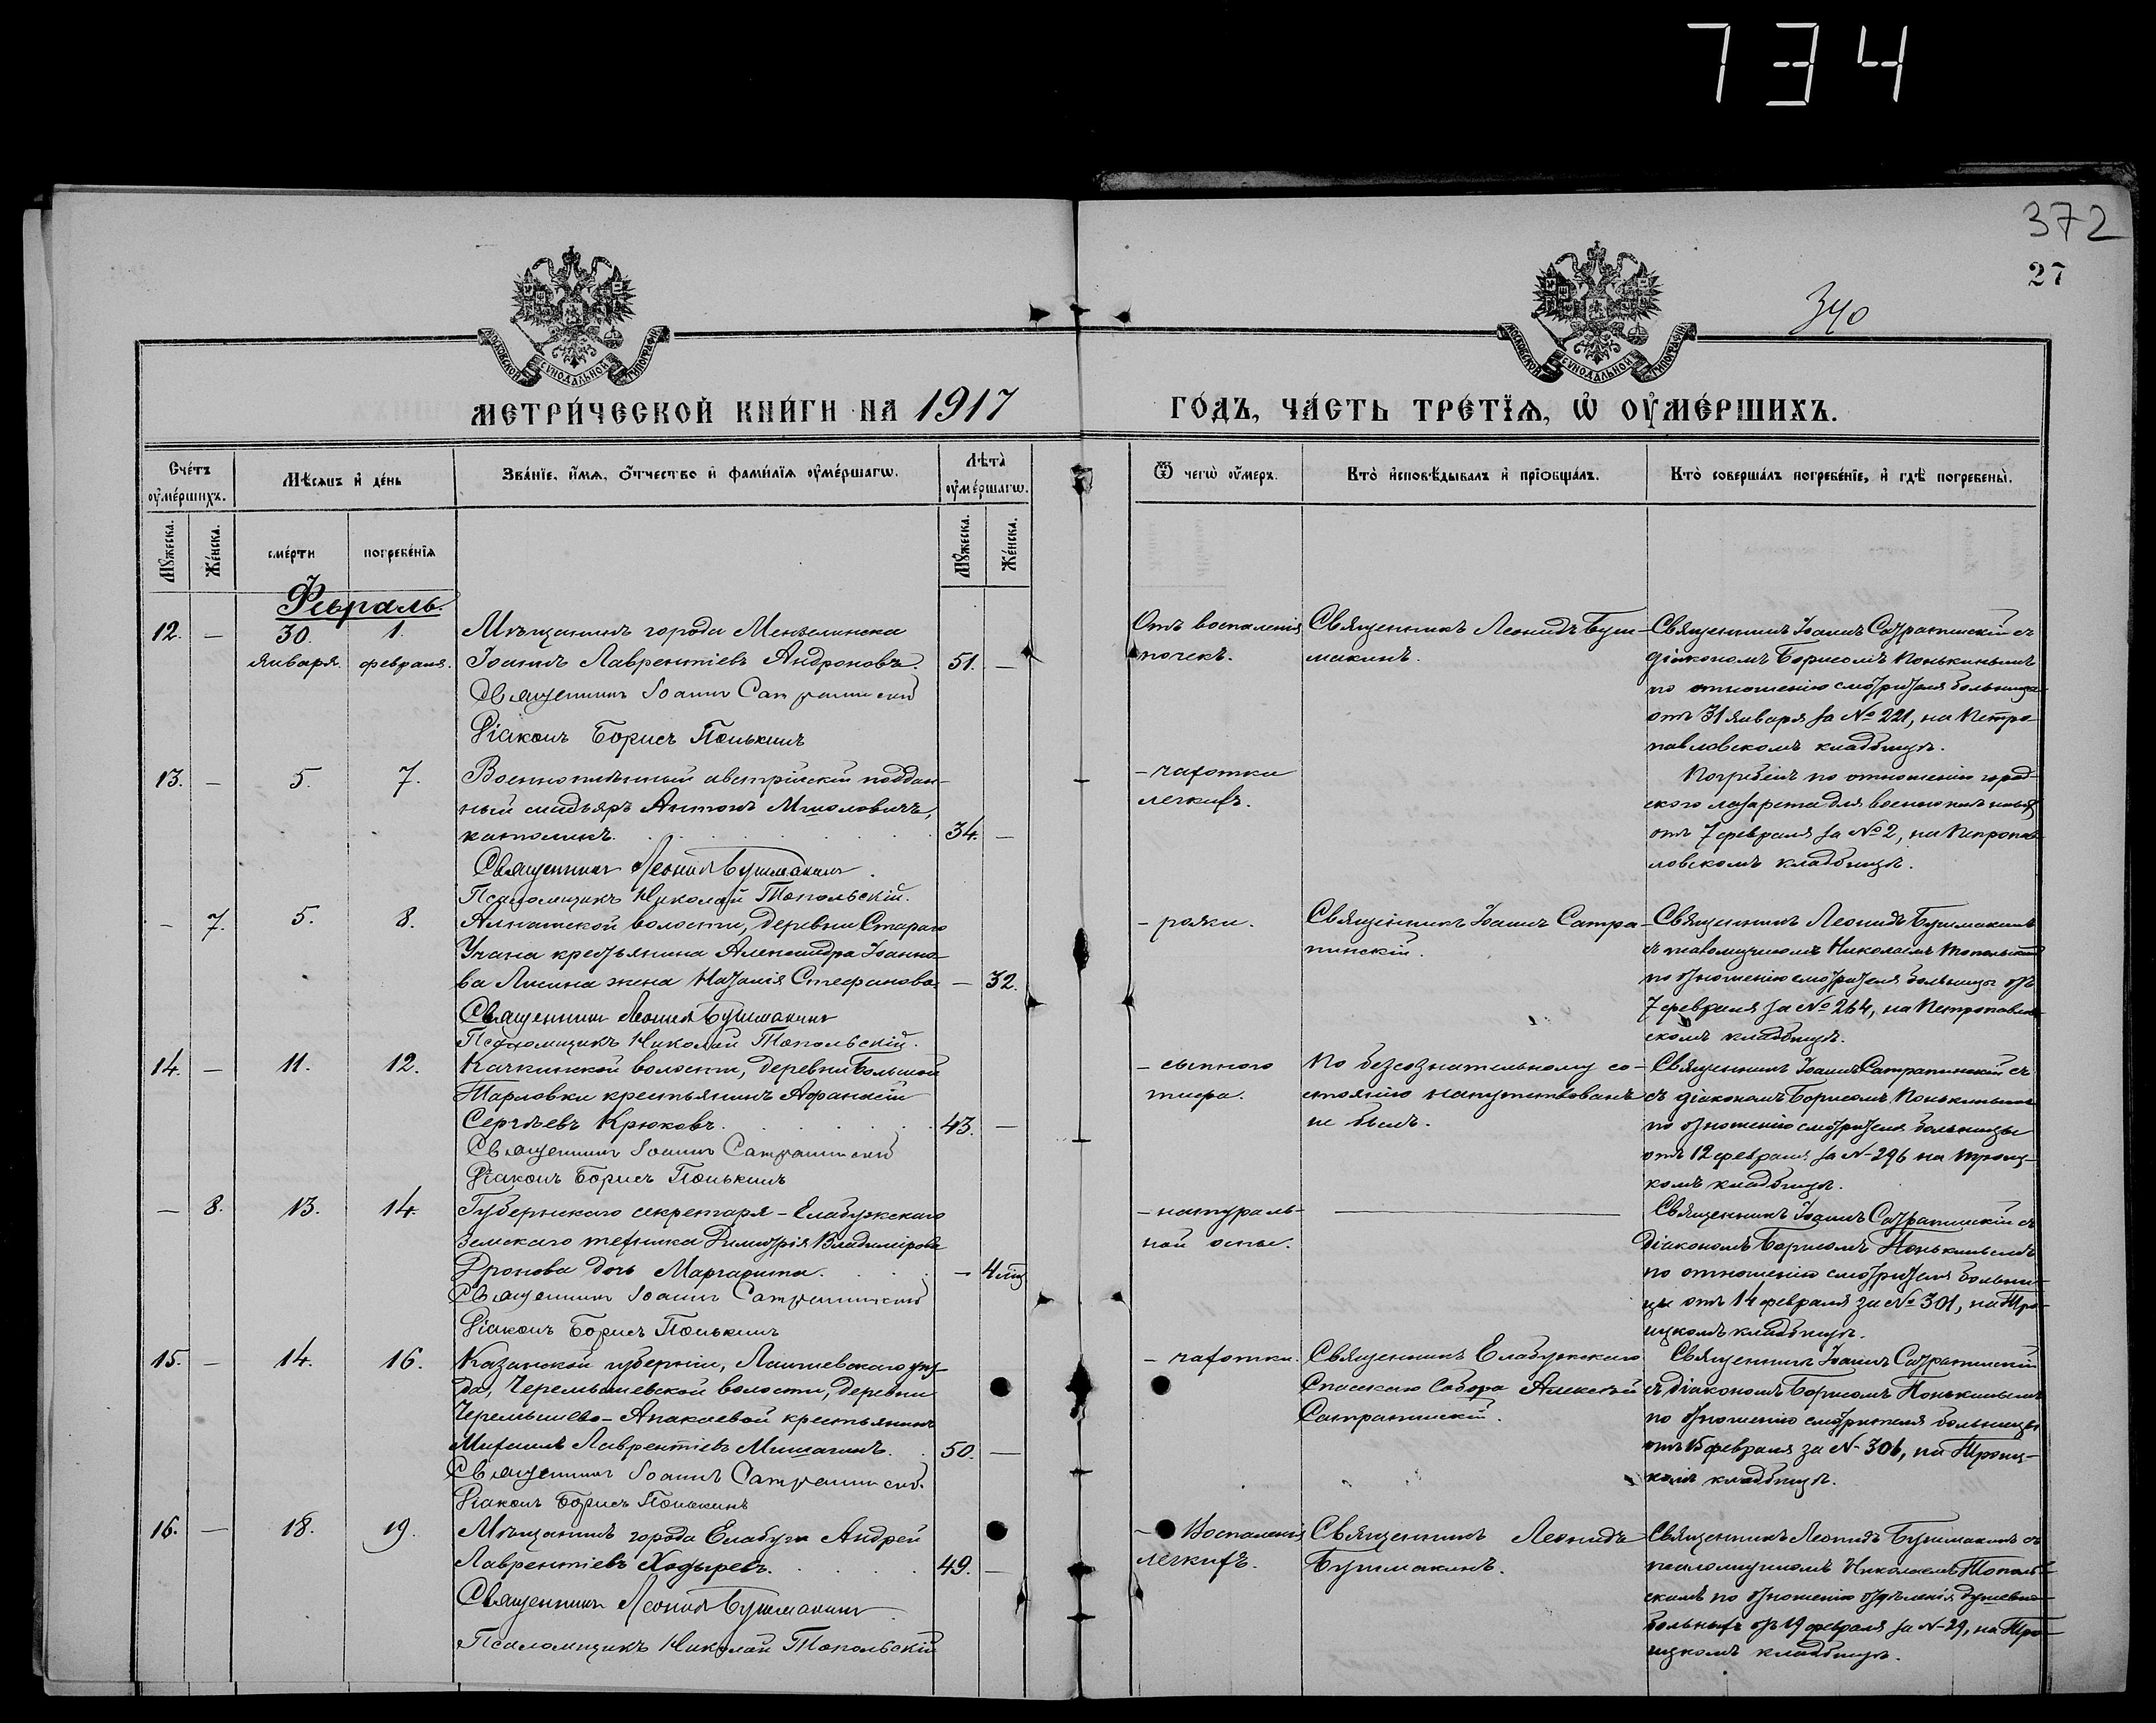 734
372
27
340
МОСКОВСКОЙ СѴНОДАЛЬНОЙ ТИПОГРАФІИ
МОСКОВСКОЙ СѴНОДАЛЬНОЙ ТИПОГРАФІИ
МЕТРИ́ЧЕСКОЙ КНИ́ГИ НА 1917 ГО́ДЪ, ЧА́СТЬ ТРЕ́ТЇѦ, Ѡ ОУ҆МЕ́РШИХЪ.
Сче́тъ оу҆ме́ршихъ.
Мѣ́сѧцъ и҆ де́нь
Зва́нїе, и҆́мѧ, о҆́тчество и҆ фами́лїѧ оу҆ме́ршагѡ.
Лѣ́та оу҆ме́ршагѡ.
Ѿ чегѡ̀ оу҆́меръ.
Кто̀ и҆сповѣ́дывалъ и҆ прїѡбща́лъ.
Кто̀ соверша́лъ погребе́нїе, и҆ гдѣ̀ погребены̀.
Мꙋ́жеска.
Же́нска.
сме́рти
погребе́нїѧ
Мꙋ́жеска.
Же́нска.
Февраль.
12. — 30. января. 1. февраля.
Мѣщанинъ города Мензелинска
Іоаннъ Лаврентіевъ Андроновъ. 51. —
Священникъ Іоаннъ Сатрапинскій
Діаконъ Борисъ Понькинъ
Отъ воспаленія
почекъ.
Священникъ Леонидъ Буш-
макинъ.
Священникъ Іоаннъ Сатрапинскій съ
діакономъ Борисомъ Понькинымъ
по отношенію смотрителя больницы
отъ 31 января за № 221, на Петро-
павловскомъ кладбищѣ.
13. — 5. 7.
Военноплѣнный австрійскій поддан-
ный мадьяръ Антонъ
католикъ. 34. —
Священникъ Леонидъ Бушмакинъ
Псаломщикъ Николай Топольскій.
— чахотки
легкихъ.
Погребенъ по отношенію город-
ского лазарета для военноплѣнныхъ
отъ 7 февраля за № 2, на Петропав-
ловскомъ кладбищѣ.
— 7. 5. 8.
Алнашской волости, деревни Стараго
Учана крестьянина Александра Іоанно-
ва Лисина жена Наталія Стефанова. — 32.
Священникъ Леонидъ Бушмакинъ
Псаломщикъ Николай Топольскій.
— рожи.
Священникъ Іоаннъ Сатра-
пинскій.
Священникъ Леонидъ Бушмакинъ
съ псаломщикомъ Николаемъ Топольскимъ
по отношенію смотрителя больницы отъ
7 февраля за № 264, на Петропавлов-
скомъ кладбищѣ.
14. — 11. 12.
Качкинской волости, деревни Большой
Тарловки крестьянинъ Афанасій
Сергѣевъ Крюковъ. 43. —
Священникъ Іоаннъ Сатрапинскій
Діаконъ Борисъ Понькинъ
— сыпного
тифа.
По безсознательному со-
стоянію напутствованъ
не былъ.
Священникъ Іоаннъ Сатрапинскій съ
съ діакономъ Борисомъ Понькинымъ
по отношенію смотрителя больницы
отъ 12 февраля за № 296 на Троиц-
комъ кладбищѣ.
— 8. 13. 14.
Губернскаго секретаря — Елабужскаго
земскаго техника Димитрія Владимірова
Дронова дочь Маргарита. — 4 мѣс
Священникъ Іоаннъ Сатрапинскій
Діаконъ Борисъ Понькинъ
— натураль-
ной оспы.
Священникъ Іоаннъ Сатрапинскій съ
діакономъ Борисомъ Понькинымъ
по отношенію смотрителя больни-
цы отъ 14 февраля за № 301, на Тро-
ицкомъ кладбищѣ.
15. — 14. 16.
Казанской губерніи, Лаишевскаго уѣз-
да, Черемышевской волости, деревни
Черемышево-Апакаевой крестьянинъ
Михаилъ Лаврентіевъ Мишагинъ. 50. —
Священникъ Іоаннъ Сатрапинскій.
Діаконъ Борисъ Понькинъ
— чахотки.
Священникъ Елабужскаго
Спасскаго Собора Алексѣй
Сатрапинскій.
Священникъ Іоаннъ Сатрапинскій
съ діакономъ Борисомъ Понькинымъ
по отношенію смотрителя больницы
отъ 15 февраля за № 306, на Троиц-
комъ кладбищѣ.
16. — 18. 19.
Мѣщанинъ города Елабуги Андрей
Лаврентіевъ Ходыревъ. 49. —
Священникъ Леонидъ Бушмакинъ
Псаломщикъ Николай Топольскій
— Воспаленія
легкихъ.
Священникъ Леонидъ
Бушмакинъ.
Священникъ Леонидъ Бушмакинъ съ
псаломщикомъ Николаемъ Тополь-
скимъ по отношенію отдѣленія душевно-
больныхъ отъ 19 февраля за № 29, на Тро-
ицкомъ кладбищѣ.